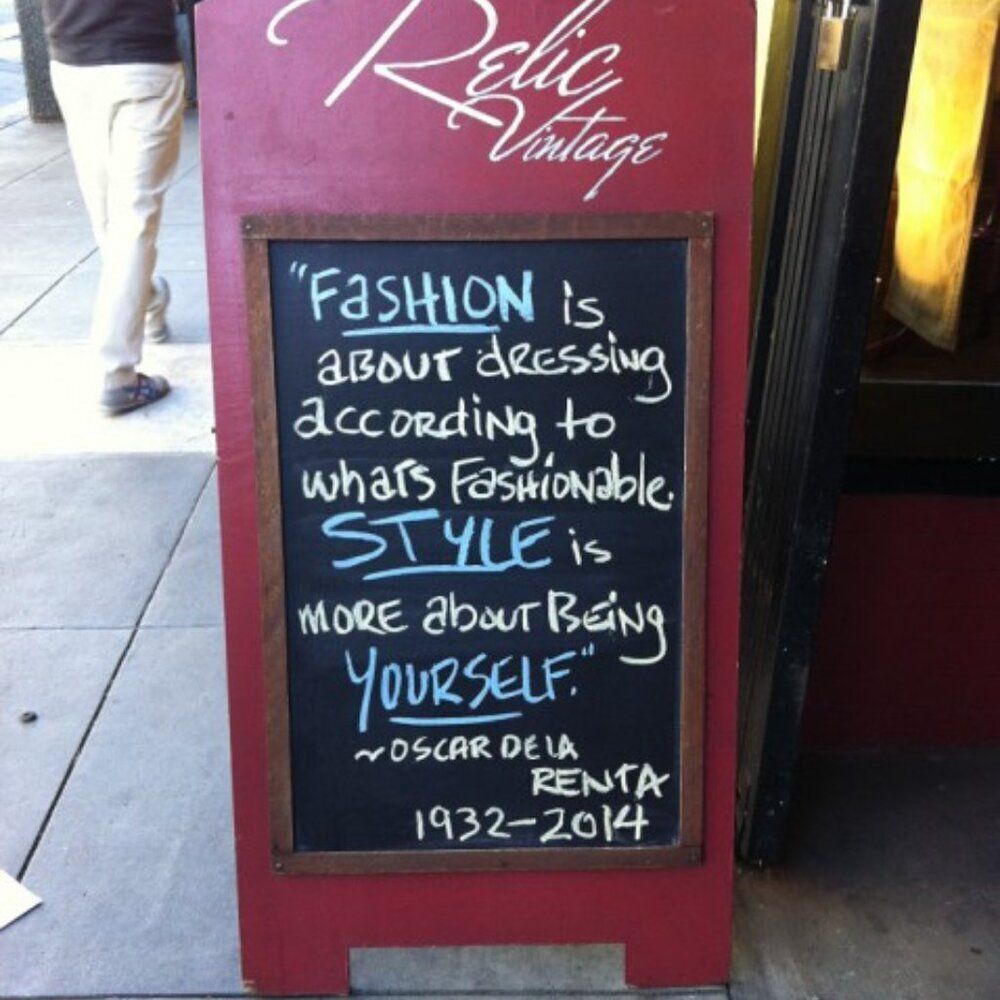 Relic
Vintage
"FaSHION is
aBOUT dRESSiNg
accORdiNg to
whaTs FaSHiONable.
STYLE is
MORE abOUT BeiNg
YOURSELF."
~OSCAR DE LA
RENTA
1932-2014